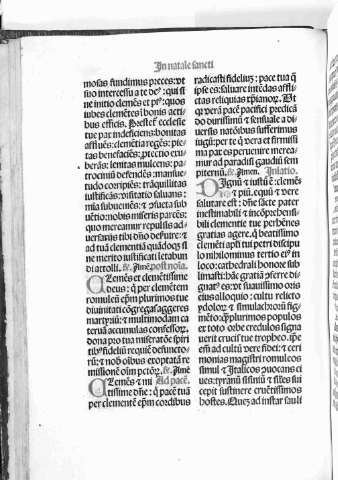 In natale sancti
mosas fundimus preces: vt
suo intercessu a te deº: qui si
ne initio clemēs et pˢ: quos
iubes clemētes bonis acti
bus efficis. Prestet ecclesie
tue par indeficiens: bonitas
affluēs: clemētia regēs: pie
tas benefaciēs: ptectio exu
berās: lenitas mulcens: pa
trociniū defendēs: māsue
tudo corripiēs: trāquillitas
iustificās: visitatio saluans:
mia subueniēs: &
uētio: nobis miseris parces:
quo mereamur repulsis ad
uersariis tibi dño deseruire: &
ad tua clementiā quādoqꝫ si
ne merito iustificati letabun
di attolli. &c. Amē. post noīa.
Clemēs et clementissime
deus: q̄ per clemētem
romulen epm plurimos tue
diuinitati cōgregas aggeres
martyriū: & multimodam ca
teruā accumulas confessoꝝ.
dona pro tua miseratōe spiri
tibº fidelium requiē defuncto-
rū: & nob oībus exoptatā re
missionē oīm pctoꝝ. &c. Amē
Clemēs & mi Ad pacē.
tissime dñe: q̄ pacē tuā
per clementē epm cordibus
radicasti fidelium: pace tua q̄
ipse es: saluare intēdas affli
ctas reliquias xp̄ianoꝝ. Et
qr verā pacē pacifici predicā
do durissimū & sensuale a di
uersis natōibus sufferimus
iugū: per te q̄ vera et firmissi
ma pax es peruenire merea
mur ad paradisi gaudiū sem
piternū. &c. Amen. Inlatio.
Dignū & iustū ē: clemēs
& piū, equū & vere
salutare est: dñe sācte pater
inestimabili & incōprehensi-
bili clementie tue perhēnes
gratias agere. q̄ beatissimo
clemēti apli tui petri discipu
lo nihilominus tertio eiº in
loco: cathedrali honore sub
limasti: hāc gratiā pferre di-
gnatº es: vt suauissimo oris
eius alloquio: cultu relicto
ydoloꝝ & simulachroꝝ fig-
mēto: qplurimos populos
ex toto orbe credulos signa
uerit crucis tue tropheo. ipē
effra ad cultū vere fidei: & ceri
monias magistri romuleos
simul & Italicos vocans ci
ues: tyrānū sistiniū & files sui
cepit sustinere cruētissimos
hostes. Quez ad instar sauli